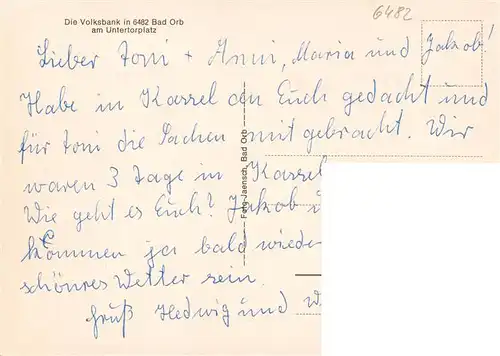 Die Volksbank in 6482 Bad Orb
am Untertorplatz
6482
Lieber Toni + Anni, Maria und Jakob!
Habe in Kassel an Euch gedacht und
für Toni die Sachen mit gebracht. Wir
waren 3 Tage in Kassel
Wie geht es Euch? Jakob u
kommen ja bald wiede
schönres Wetter sein.
Gruß Hedwig und W
Foto-Jaensch, Bad Orb